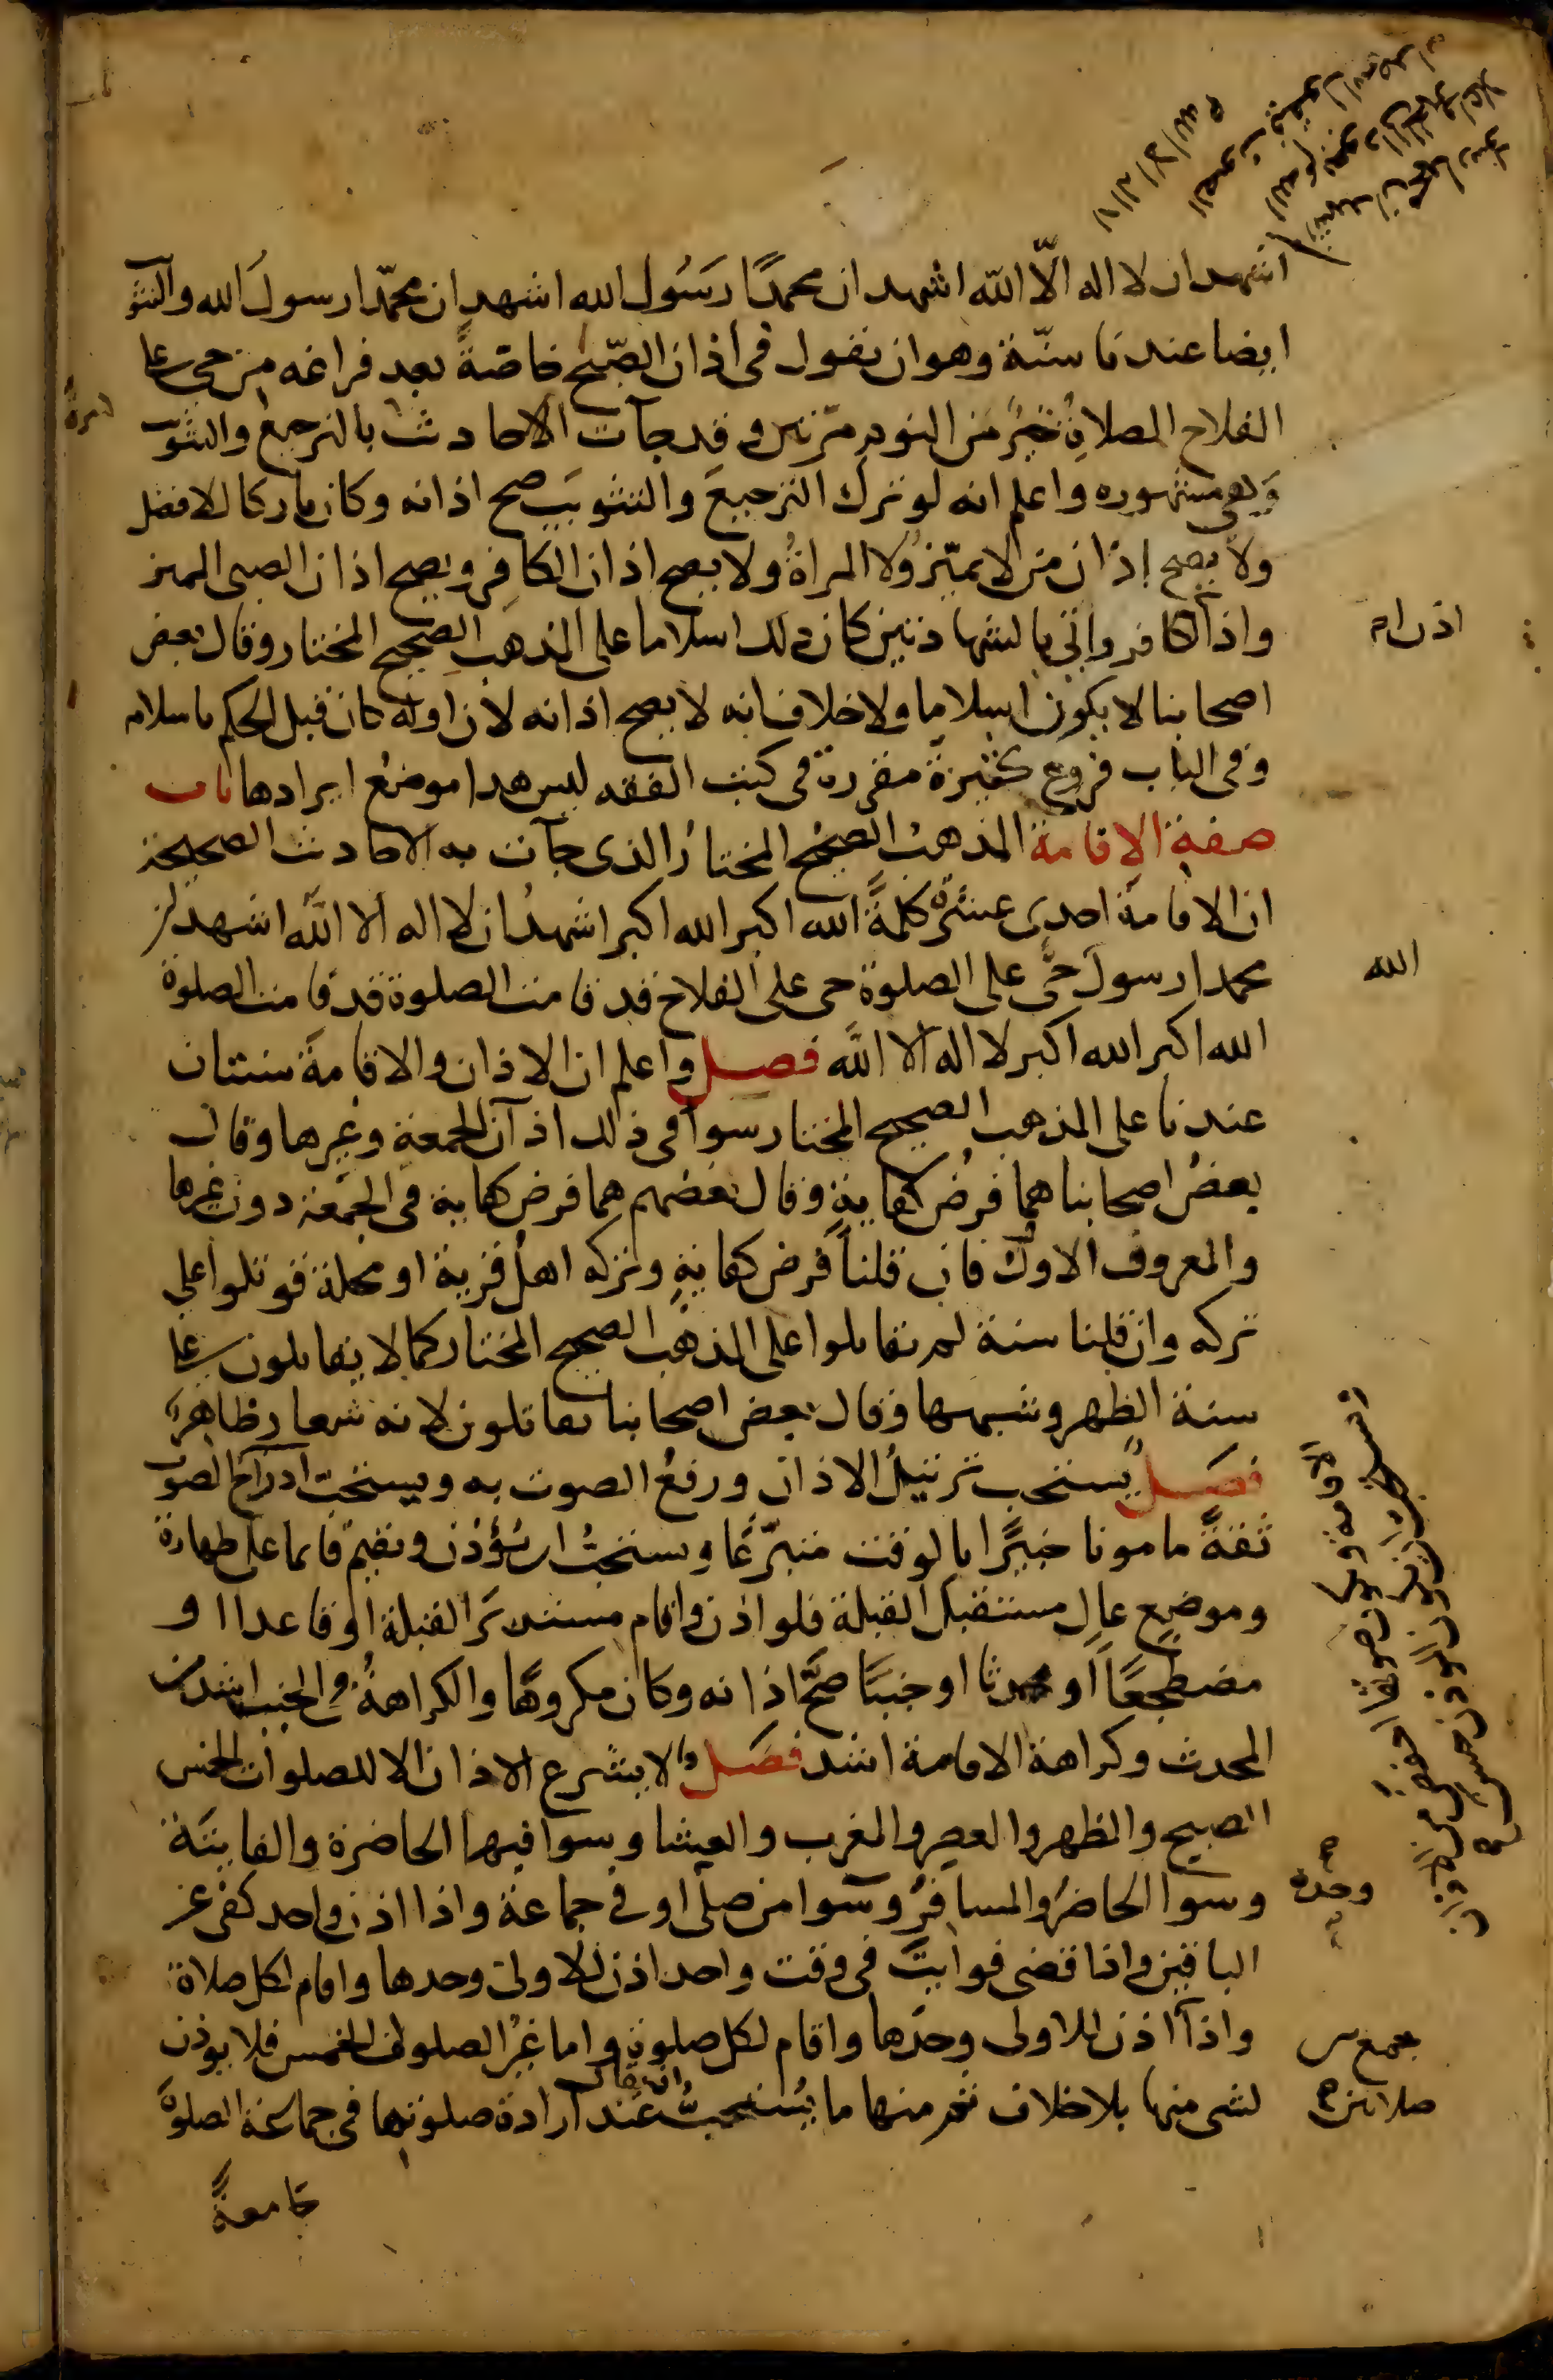 اشهد ان لا اله الّا اللّه اشهد ان محمدًا رَسُول الله اشهد ان محمّدا رسولَ الله والتثو
ايضا عندنا سنّة وهو ان يقول فى اذان الصّبح خاصّةً بعد فراغه من حى على
الفلاح الصلاةِ خيرٌ من النوم مرّتين وقد جآت الاحاديث بالترجيع والتثويب
وهى مشهوره واعلم انه لو ترك الترجيعَ والتثويبَ صح اذانه وكان تاركا للافضل
ولا يصح اذان من لا يميّز ولا المراةُ ولا يصح اذان الكافِر ويصح اذان الصبى المميز
واذا الكافر واتى بالشهادتين كان ذلك اسلاما على المذهب الصحيح المختار وقال بعض
اصحابنا لا يكون اسلاما ولا خلاف انه لا يصح اذانه لان اوله كان قبل الحكم باسلام
وفى الباب فروع كثيرة مقررة فى كتب الفقه ليس هدا موضعُ ايرادها باب
صفة الاقامة المذهبُ الصحيح المختارُ الذى جآت به الاحاديث الصحيحة
ان الاقامة احدى عشرة كلمةً الله اكبر الله اكبر اشهدُ ان لا اله الا اللّه اشهد ان
محمدا رسول حىَّ على الصلوة حى على الفلاح قد قامت الصلوة قد قامت الصلوة
الله اكبر الله اكبر لا اله الا اللّه فصل واعلم ان الاذان والاقامةَ سنتان
عندنا على المذهب الصحيح المختار سوآ فى ذلك اذآن الجمعة وغيرها وقال
بعضُ اصحابنا هما فرضُ كفايةٍ وقال بعضهم هما فرض كفاية فى الجمعة دون غيرها
والمعروف الاول فان قلنا فرض كفايةٍ وتركه اهلُ قرية او محلة قوتلوا على
تركه وان قلنا سنة لم يقاتلوا على المذهب الصحيح المختار كما لا يقاتلون على
سنة الظهر وشبهها وقال بعض اصحابنا يقاتلون لانه شعار ظاهرٌ
فصل يُستحب ترتيلُ الاذان ورفعُ الصوت به ويستحب ادراج الصوت
ثقةً مامونا خبيرًا بالوقت متبرّعًا ويستحبُّ ان يؤذن ويقيم قائما على طهارة
وموضعٍ عالٍ مستقبلَ القبلة فلو اذن واقام مستدبرَ القبلة او قاعدا او
مضطجعًا او محدثا او جنبًا صحَّ اذانه وكان مكروهًا والكراهةُ فى الجنب اشد من
المحدث وكراهة الاقامة اشد فصل ولا يشرع الاذان الا للصلوات الخمس
الصبح والظهر والعصر والمغرب والعشا وسوا فيها الحاضرة والفايتة
وسوا الحاضرُ والمسافرُ وسوا من صلّى او فى جماعة واذا اذن واحد كفى عن
الباقين واذا قضى فوايتَ فى وقت واحد اذن للاولى وحدها واقام لكل صلاة
واذا اذن للاولى وحدَها واقام لكل صلوةٍ واما غيرُ الصلوات الخمس فلا يوذن
لشى منها بلا خلاف ثم منها ما يُستحبُّ ان يقال عند ارادة صلوتها فى جماعة الصلوةَ
جامعةً
اذن ام
الله
وحده
جمع بين
صلاتين